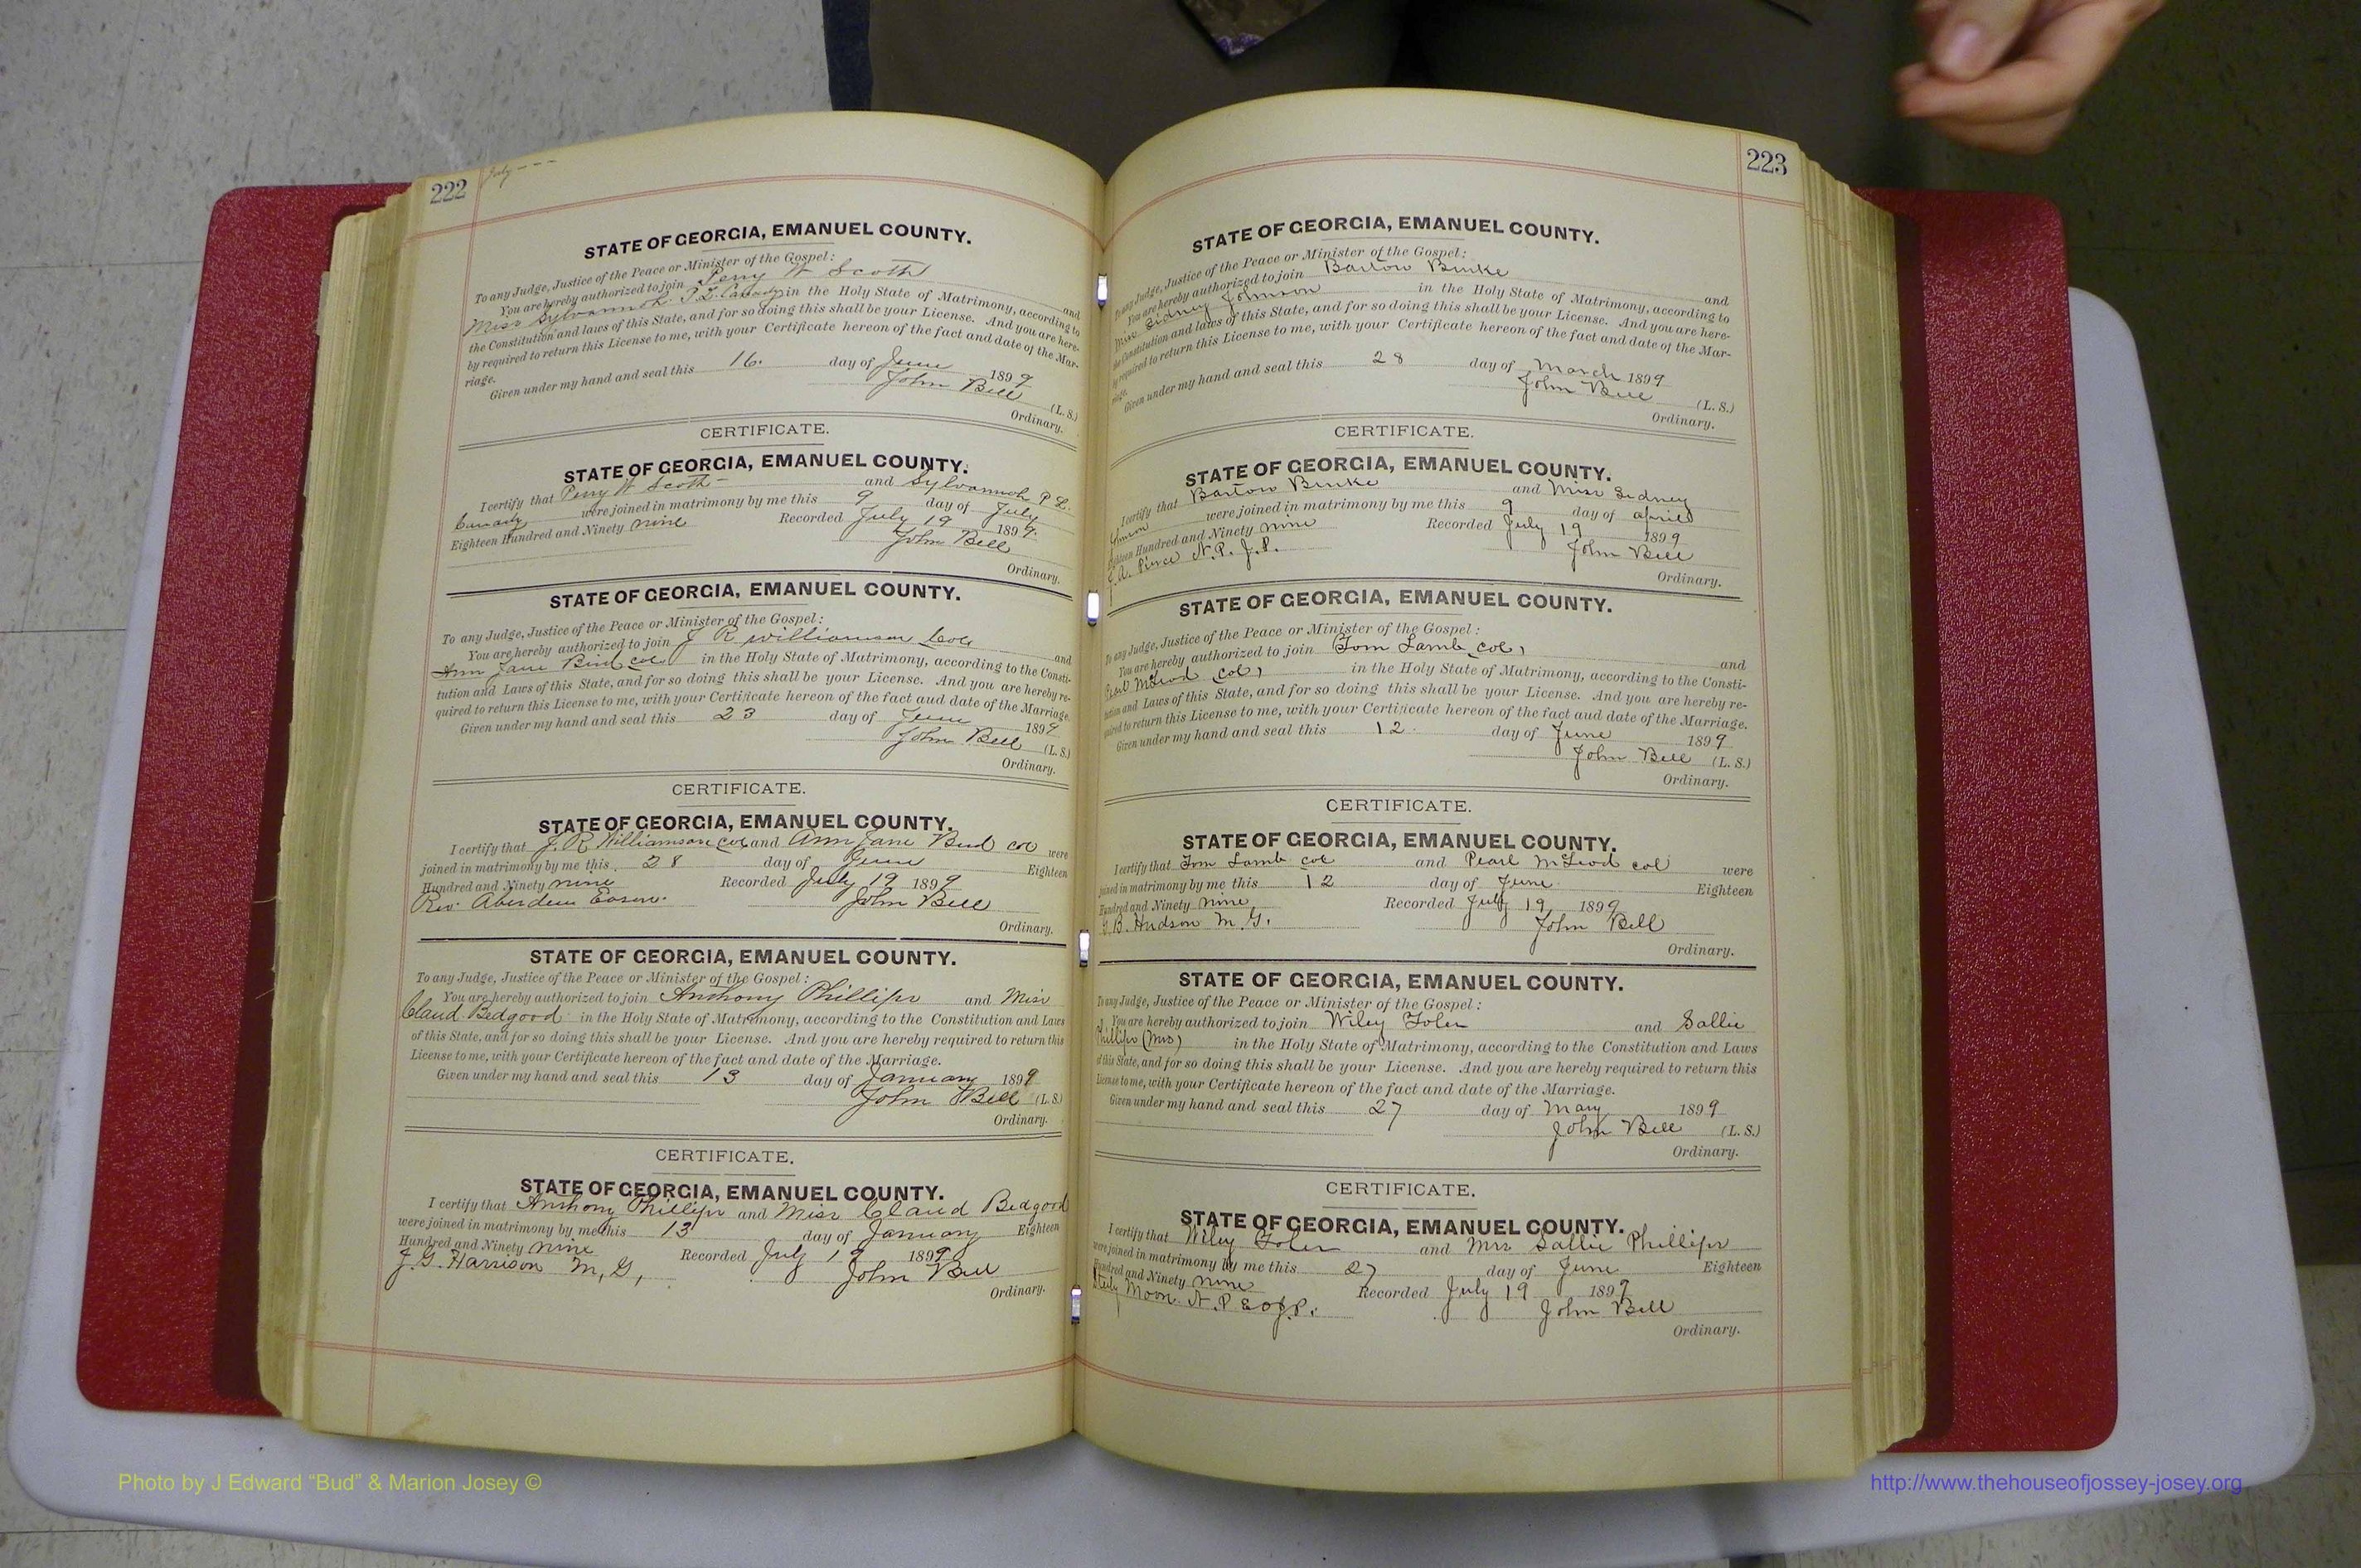 222
July - - -
STATE OF GEORGIA, EMANUEL COUNTY.
To any Judge, Justice of the Peace or Minister of the Gospel:
You are hereby authorized to join Perry W Scott and
Miss Sylvannah P. L. Canady in the Holy State of Matrimony, according to
the Constitution and laws of this State, and for so doing this shall be your License. And you are here-
by required to return this License to me, with your Certificate hereon of the fact and date of the Mar-
riage.
Given under my hand and seal this 16. day of June 1899
John Bell (L. S.)
Ordinary.
CERTIFICATE.
STATE OF GEORGIA, EMANUEL COUNTY.
I certify that Perry W Scott - and Sylvannah P L.
Canady were joined in matrimony by me this 9 day of July
Eighteen Hundred and Ninety nine Recorded July 19 1899.
John Bell
Ordinary.
STATE OF GEORGIA, EMANUEL COUNTY.
To any Judge, Justice of the Peace or Minister of the Gospel:
You are hereby authorized to join J R Williamson Col and
Ann Jane Bird col in the Holy State of Matrimony, according to the Consti-
tution and Laws of this State, and for so doing this shall be your License. And you are hereby re-
quired to return this License to me, with your Certificate hereon of the fact and date of the Marriage.
Given under my hand and seal this 23 day of June 1899
John Bell (L. S.)
Ordinary.
CERTIFICATE.
STATE OF GEORGIA, EMANUEL COUNTY.
I certify that J. R. Williamson col and Ann Jane Bird col were
joined in matrimony by me this 28 day of June Eighteen
Hundred and Ninety nine Recorded July 19 1899
Rev. Aberdeen Eason. John Bell
Ordinary.
STATE OF GEORGIA, EMANUEL COUNTY.
To any Judge, Justice of the Peace or Minister of the Gospel:
You are hereby authorized to join Anthony Phillips and Miss
Claud Bedgood in the Holy State of Matrimony, according to the Constitution and Laws
of this State, and for so doing this shall be your License. And you are hereby required to return this
License to me, with your Certificate hereon of the fact and date of the Marriage.
Given under my hand and seal this 13 day of January 1899
John Bell (L. S.)
Ordinary.
CERTIFICATE.
STATE OF GEORGIA, EMANUEL COUNTY.
I certify that Anthony Phillips and Miss Claud Bedgood
were joined in matrimony by me this 13 day of January Eighteen
Hundred and Ninety nine Recorded July 19 1899
J. G. Harrison M, G, John Bell
Ordinary.
223
STATE OF GEORGIA, EMANUEL COUNTY.
To any Judge, Justice of the Peace or Minister of the Gospel:
You are hereby authorized to join Bartow Burke and
Miss Sidney Johnson in the Holy State of Matrimony, according to
the Constitution and laws of this State, and for so doing this shall be your License. And you are here-
by required to return this License to me, with your Certificate hereon of the fact and date of the Mar-
riage.
Given under my hand and seal this 28 day of March 1899
John Bell (L. S.)
Ordinary.
CERTIFICATE.
STATE OF GEORGIA, EMANUEL COUNTY.
I certify that Bartow Burke and Miss Sidney
were joined in matrimony by me this 9 day of april
Eighteen Hundred and Ninety nine Recorded July 19 1899
A. Pierce N. P. J. P. John Bell
Ordinary.
STATE OF GEORGIA, EMANUEL COUNTY.
To any Judge, Justice of the Peace or Minister of the Gospel:
You are hereby authorized to join Tom Lamb col, and
Pearl McLeod col, in the Holy State of Matrimony, according to the Consti-
tution and Laws of this State, and for so doing this shall be your License. And you are hereby re-
quired to return this License to me, with your Certificate hereon of the fact and date of the Marriage.
Given under my hand and seal this 12. day of June 1899
John Bell (L. S.)
Ordinary.
CERTIFICATE.
STATE OF GEORGIA, EMANUEL COUNTY.
I certify that Tom Lamb col and Pearl McLeod col were
joined in matrimony by me this 12 day of June Eighteen
Hundred and Ninety nine Recorded July 19 1899
B. Hudson M. G. John Bell
Ordinary.
STATE OF GEORGIA, EMANUEL COUNTY.
To any Judge, Justice of the Peace or Minister of the Gospel:
You are hereby authorized to join Wiley Toler and Sallie
Phillips (Mrs) in the Holy State of Matrimony, according to the Constitution and Laws
of this State, and for so doing this shall be your License. And you are hereby required to return this
License to me, with your Certificate hereon of the fact and date of the Marriage.
Given under my hand and seal this 27 day of May 1899
John Bell (L. S.)
Ordinary.
CERTIFICATE.
STATE OF GEORGIA, EMANUEL COUNTY.
I certify that Wiley Toler and Mrs Sallie Phillips
were joined in matrimony by me this 27 day of June Eighteen
Hundred and Ninety nine Recorded July 19 1899
Moon. N. P & of J. P. John Bell
Ordinary.
Photo by J Edward “Bud” & Marion Josey ©
http://www.thehouseofjossey-josey.org